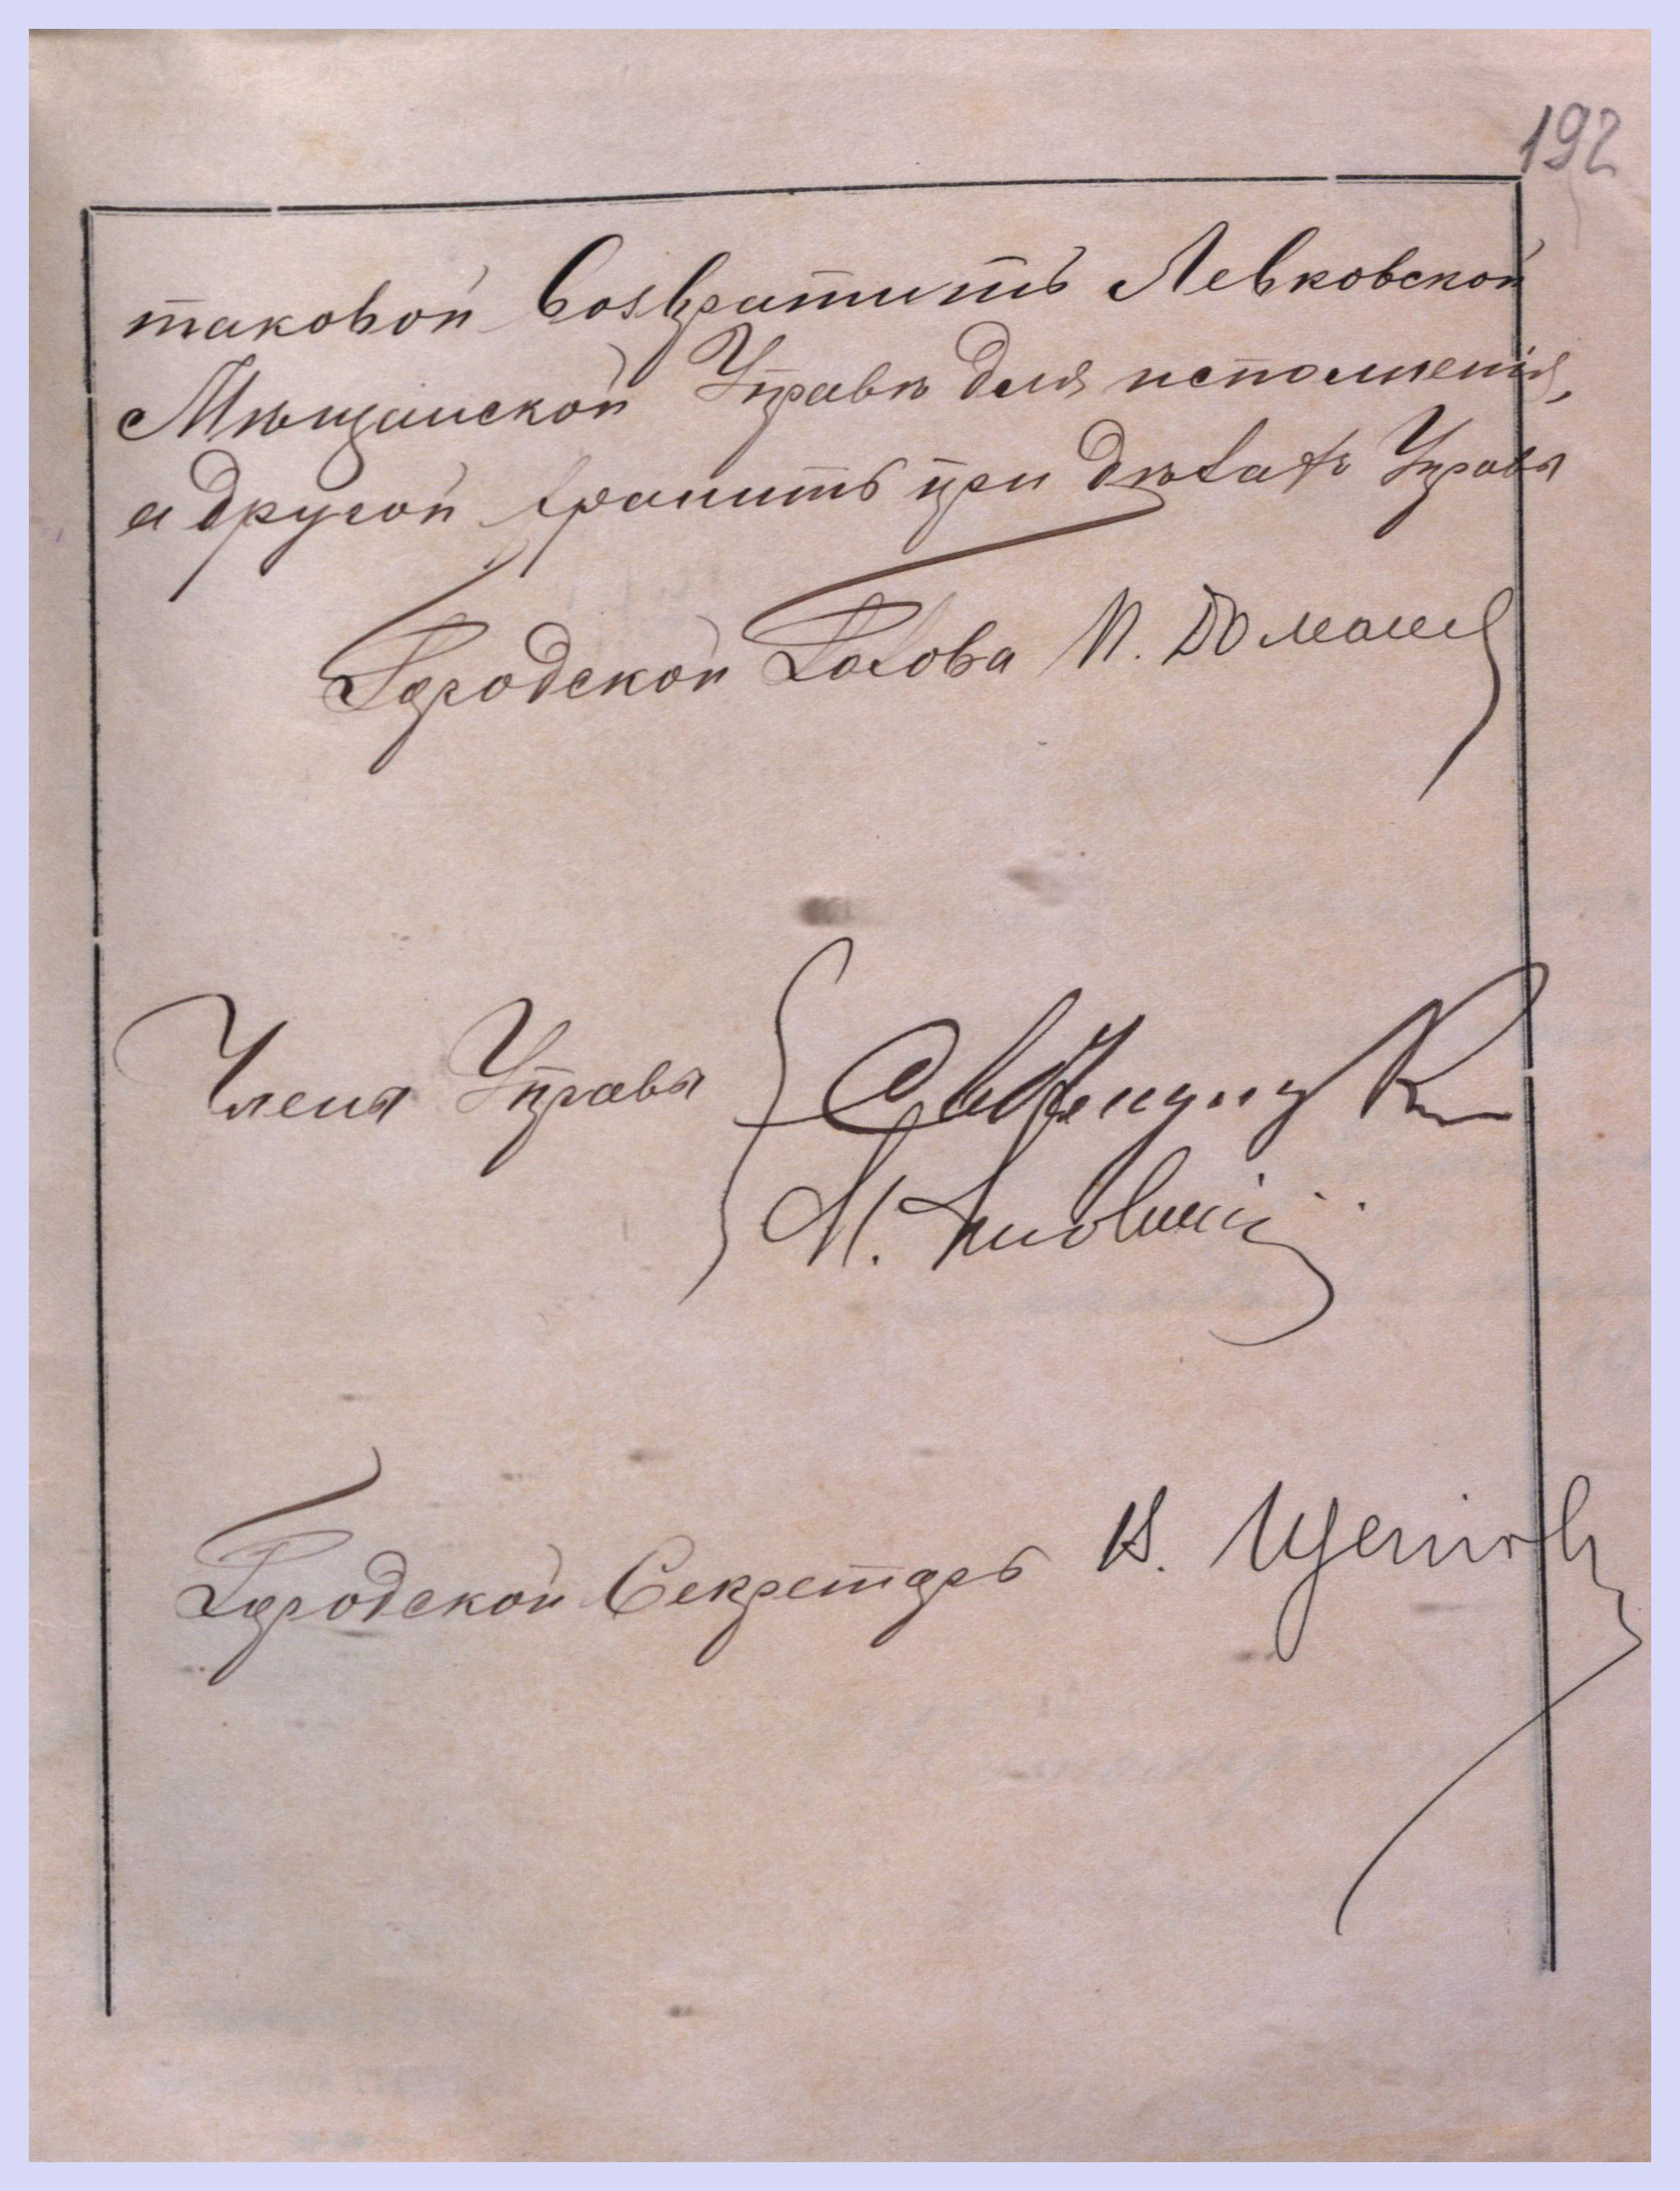 192
таковой возвратить Левковской
Мѣщанской Управѣ для исполненія,
а другой хранить при дѣлахъ Управы
Городской Голова П.
Члены Управы
М.
Городской Секретарь